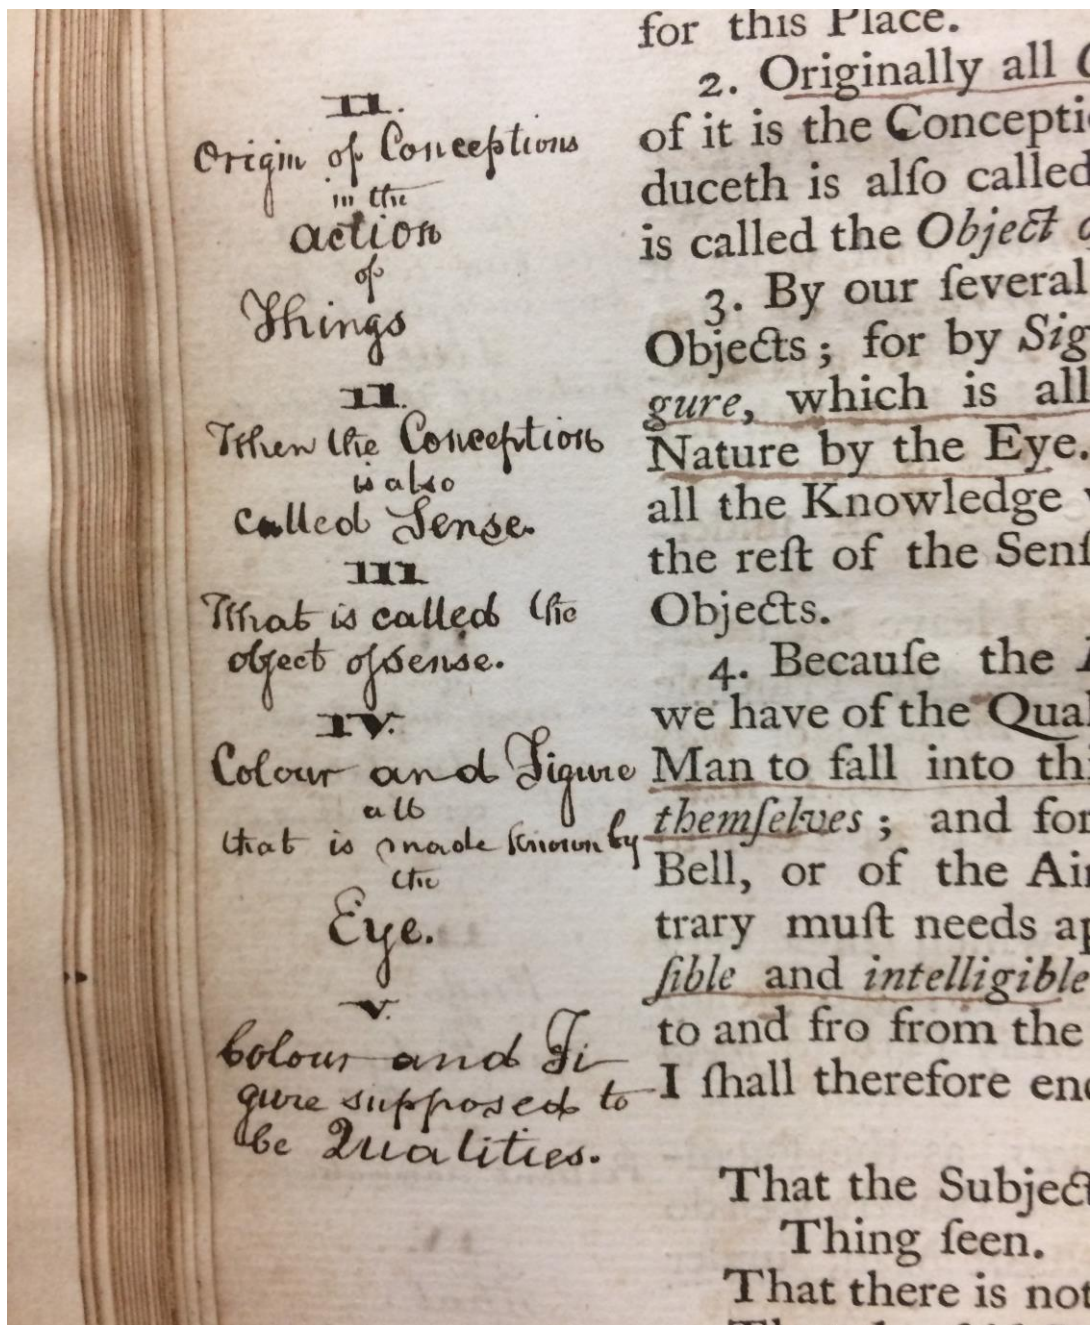 II.
Origin of Conceptions
in the
action
of
Things
II.
When the Conception
is also
called Sense.
III
What is called the
object of sense.
IV.
Colour and Figure
all
that is made known by
the
Eye.
V.
Colour and Fi-
gure supposed to
be Qualities.
for this Place.
2. Originally all
of it is the Concepti
duceth is alſo called
is called the Object
3. By our ſeveral
Objects; for by Sig
gure, which is all
Nature by the Eye.
all the Knowledge
the reſt of the Senſ
Objects.
4. Becauſe the
we have of the Qual
Man to fall into thi
themſelves; and for
Bell, or of the Air
trary muſt needs ap
ſible and intelligible
to and fro from the
I ſhall therefore en
That the Subject
Thing ſeen.
That there is not